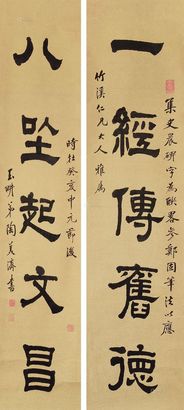 集史晨碑字為聯略參鄭固筆法以應
一經傳舊德
竹溪仁兄大人雅屬
時在癸亥中元節後
八坐起文昌
弟陶
書